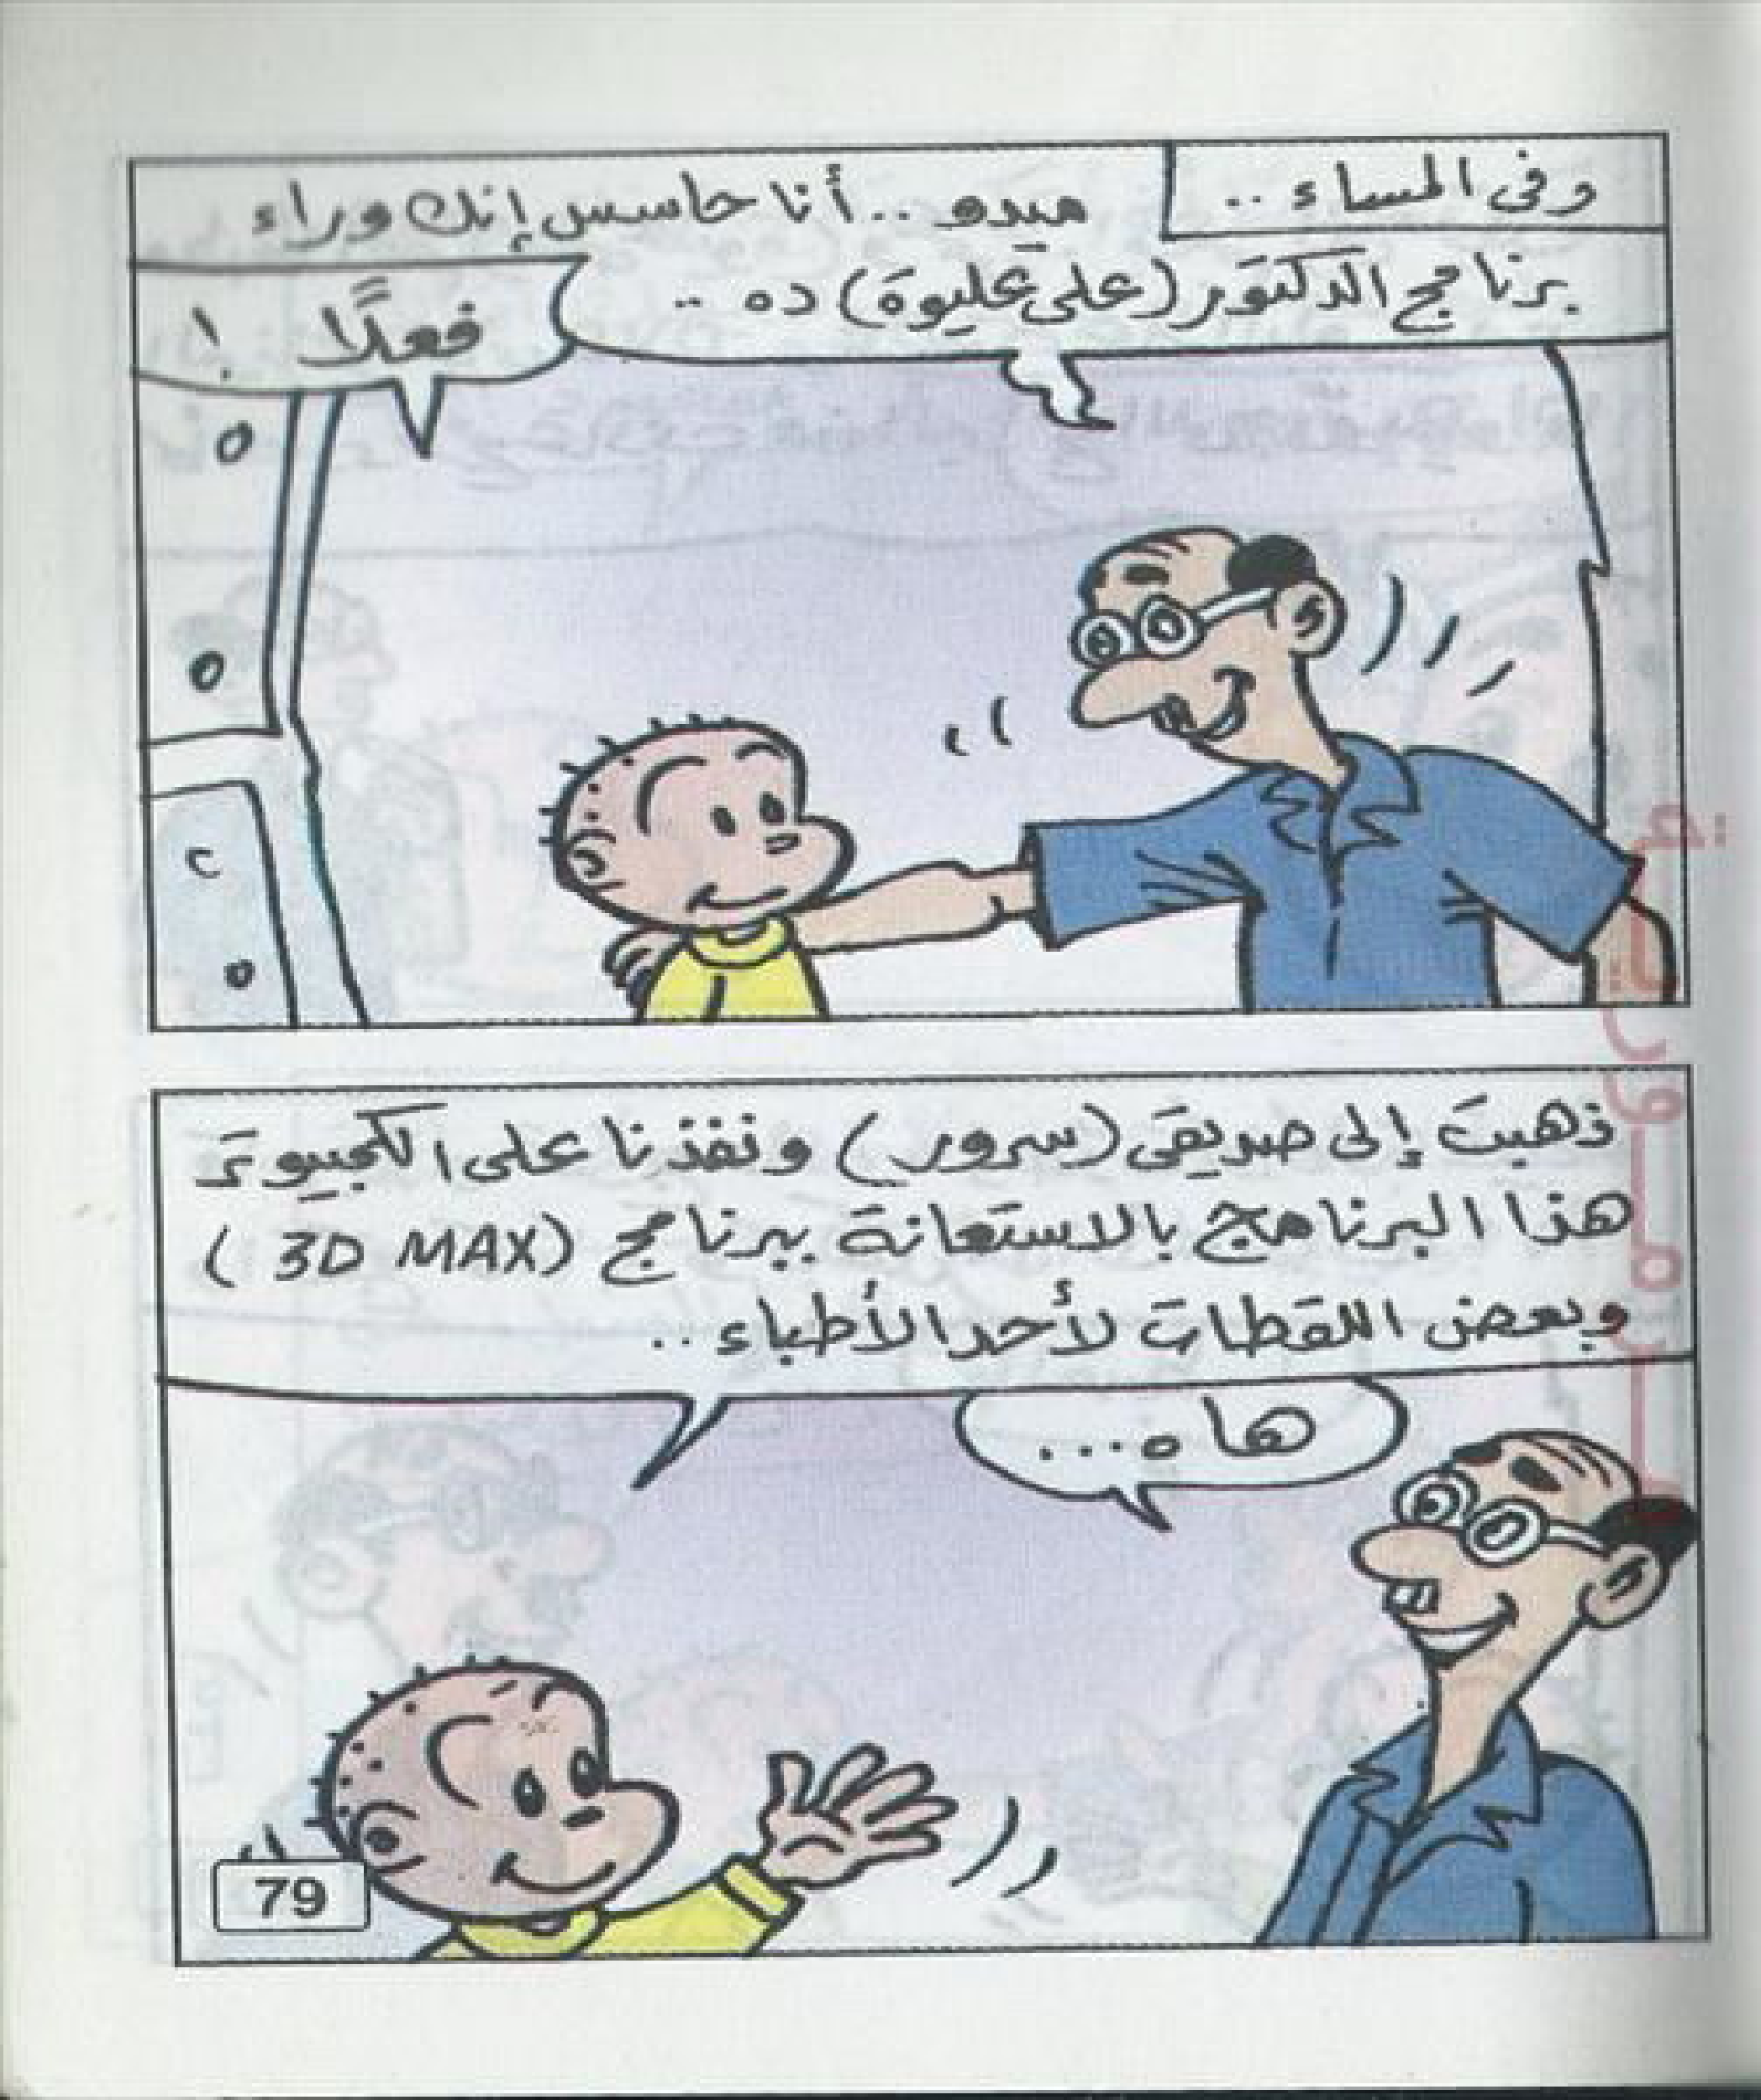 وفى المساء ..
ميدو .. أنا حاسس إنك وراء
برنامج الدكتور (على عليوة) ده ..
فعلًا !
ذهبت إلى صديقى (سرور) ونفذنا على الكمبيوتر
هذا البرنامج بالاستعانة ببرنامج (3D MAX)
وبعض اللقطات لأحد الأطباء ..
هاه ...
79